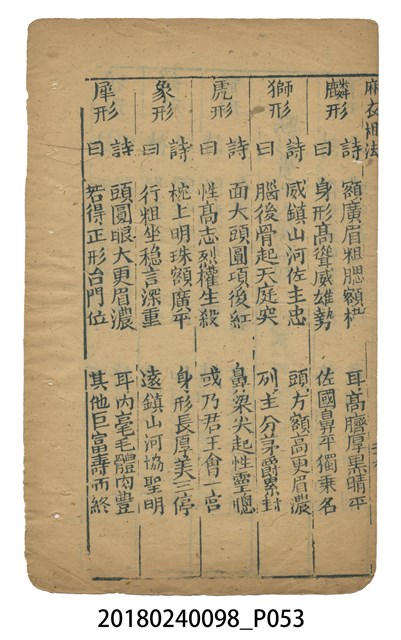 麻衣相法
麟形
詩曰
額廣眉粗腮額　耳高臍厚黑睛平
身形高聳威雄勢　佐國鼻平獨秉名
獅形
詩曰
威鎮山河佐主忠　頭方額高更眉濃
腦後骨起天庭突　列主分茅爵累封
虎形
詩曰
面大頭圓項後紅　鼻梁尖起性靈聰
性高志烈權生殺　或乃君王會一宮
象形
詩曰
枕上明珠額廣平　身形長厚美三停
行粗坐穩言深重　遠鎮山河協聖明
犀形
詩曰
頭圓眼大更眉濃　耳內毫毛體肉豊
若得正形台門位　其他巨富壽而終
20180240098_P053